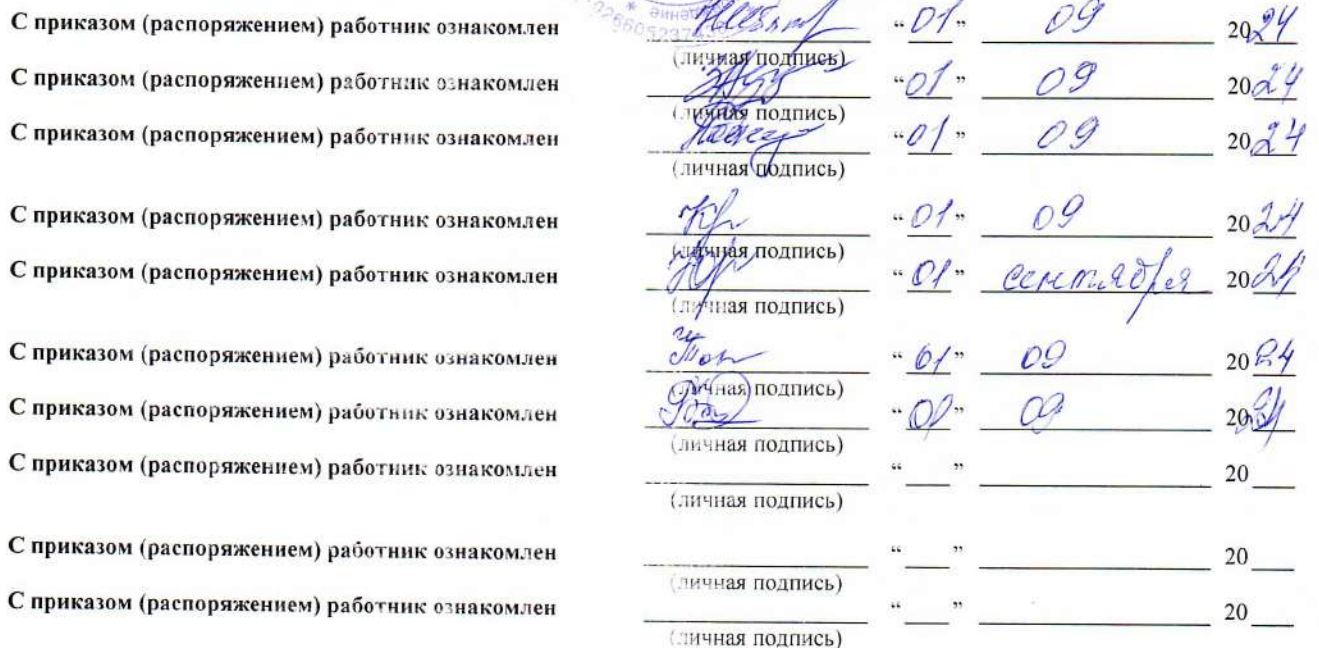 С приказом (распоряжением) работник ознакомлен “01” 09 2024
(личная подпись)
С приказом (распоряжением) работник ознакомлен “01” 09 2024
(личная подпись)
С приказом (распоряжением) работник ознакомлен “01” 09 2024
(личная подпись)
С приказом (распоряжением) работник ознакомлен “01” 09 2024
(личная подпись)
С приказом (распоряжением) работник ознакомлен “01” сентября 2024
(личная подпись)
С приказом (распоряжением) работник ознакомлен “01” 09 2024
(личная подпись)
С приказом (распоряжением) работник ознакомлен “01” 09 2024
(личная подпись)
С приказом (распоряжением) работник ознакомлен “___” ___ 20___
(личная подпись)
С приказом (распоряжением) работник ознакомлен “___” ___ 20___
(личная подпись)
С приказом (распоряжением) работник ознакомлен “___” ___ 20___
(личная подпись)